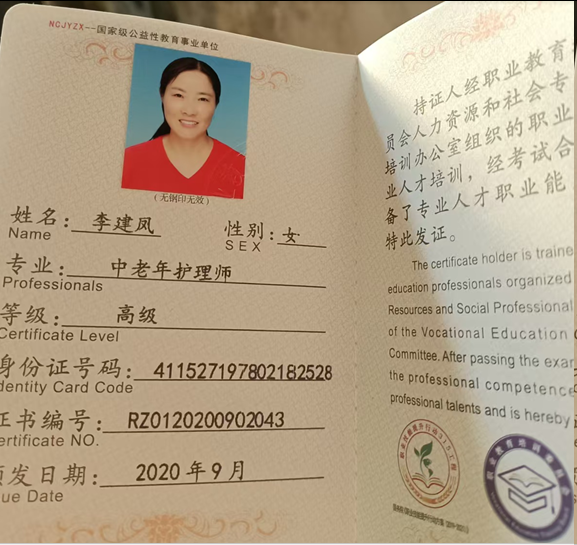 NCJYZX--国家级公益性教育事业单位
(无钢印无效)
姓名: 李建凤 性别: 女
Name SEX
专业: 中老年护理师
Professionals
等级: 高级
Certificate Level
身份证号码: 411527197802182528
Identity Card Code
证书编号: RZ0120200902043
ertificate NO.
颁发日期: 2020年9月
ue Date
持证人经职业教育
员会人力资源和社会专
培训办公室组织的职业
业人才培训，经考试合
备了专业人才职业能
特此发证。
The certificate holder is traine
education professionals organized
Resources and Social Professional
of the Vocational Education
Committee. After passing the exar
the professional competence
professional talents and is hereby